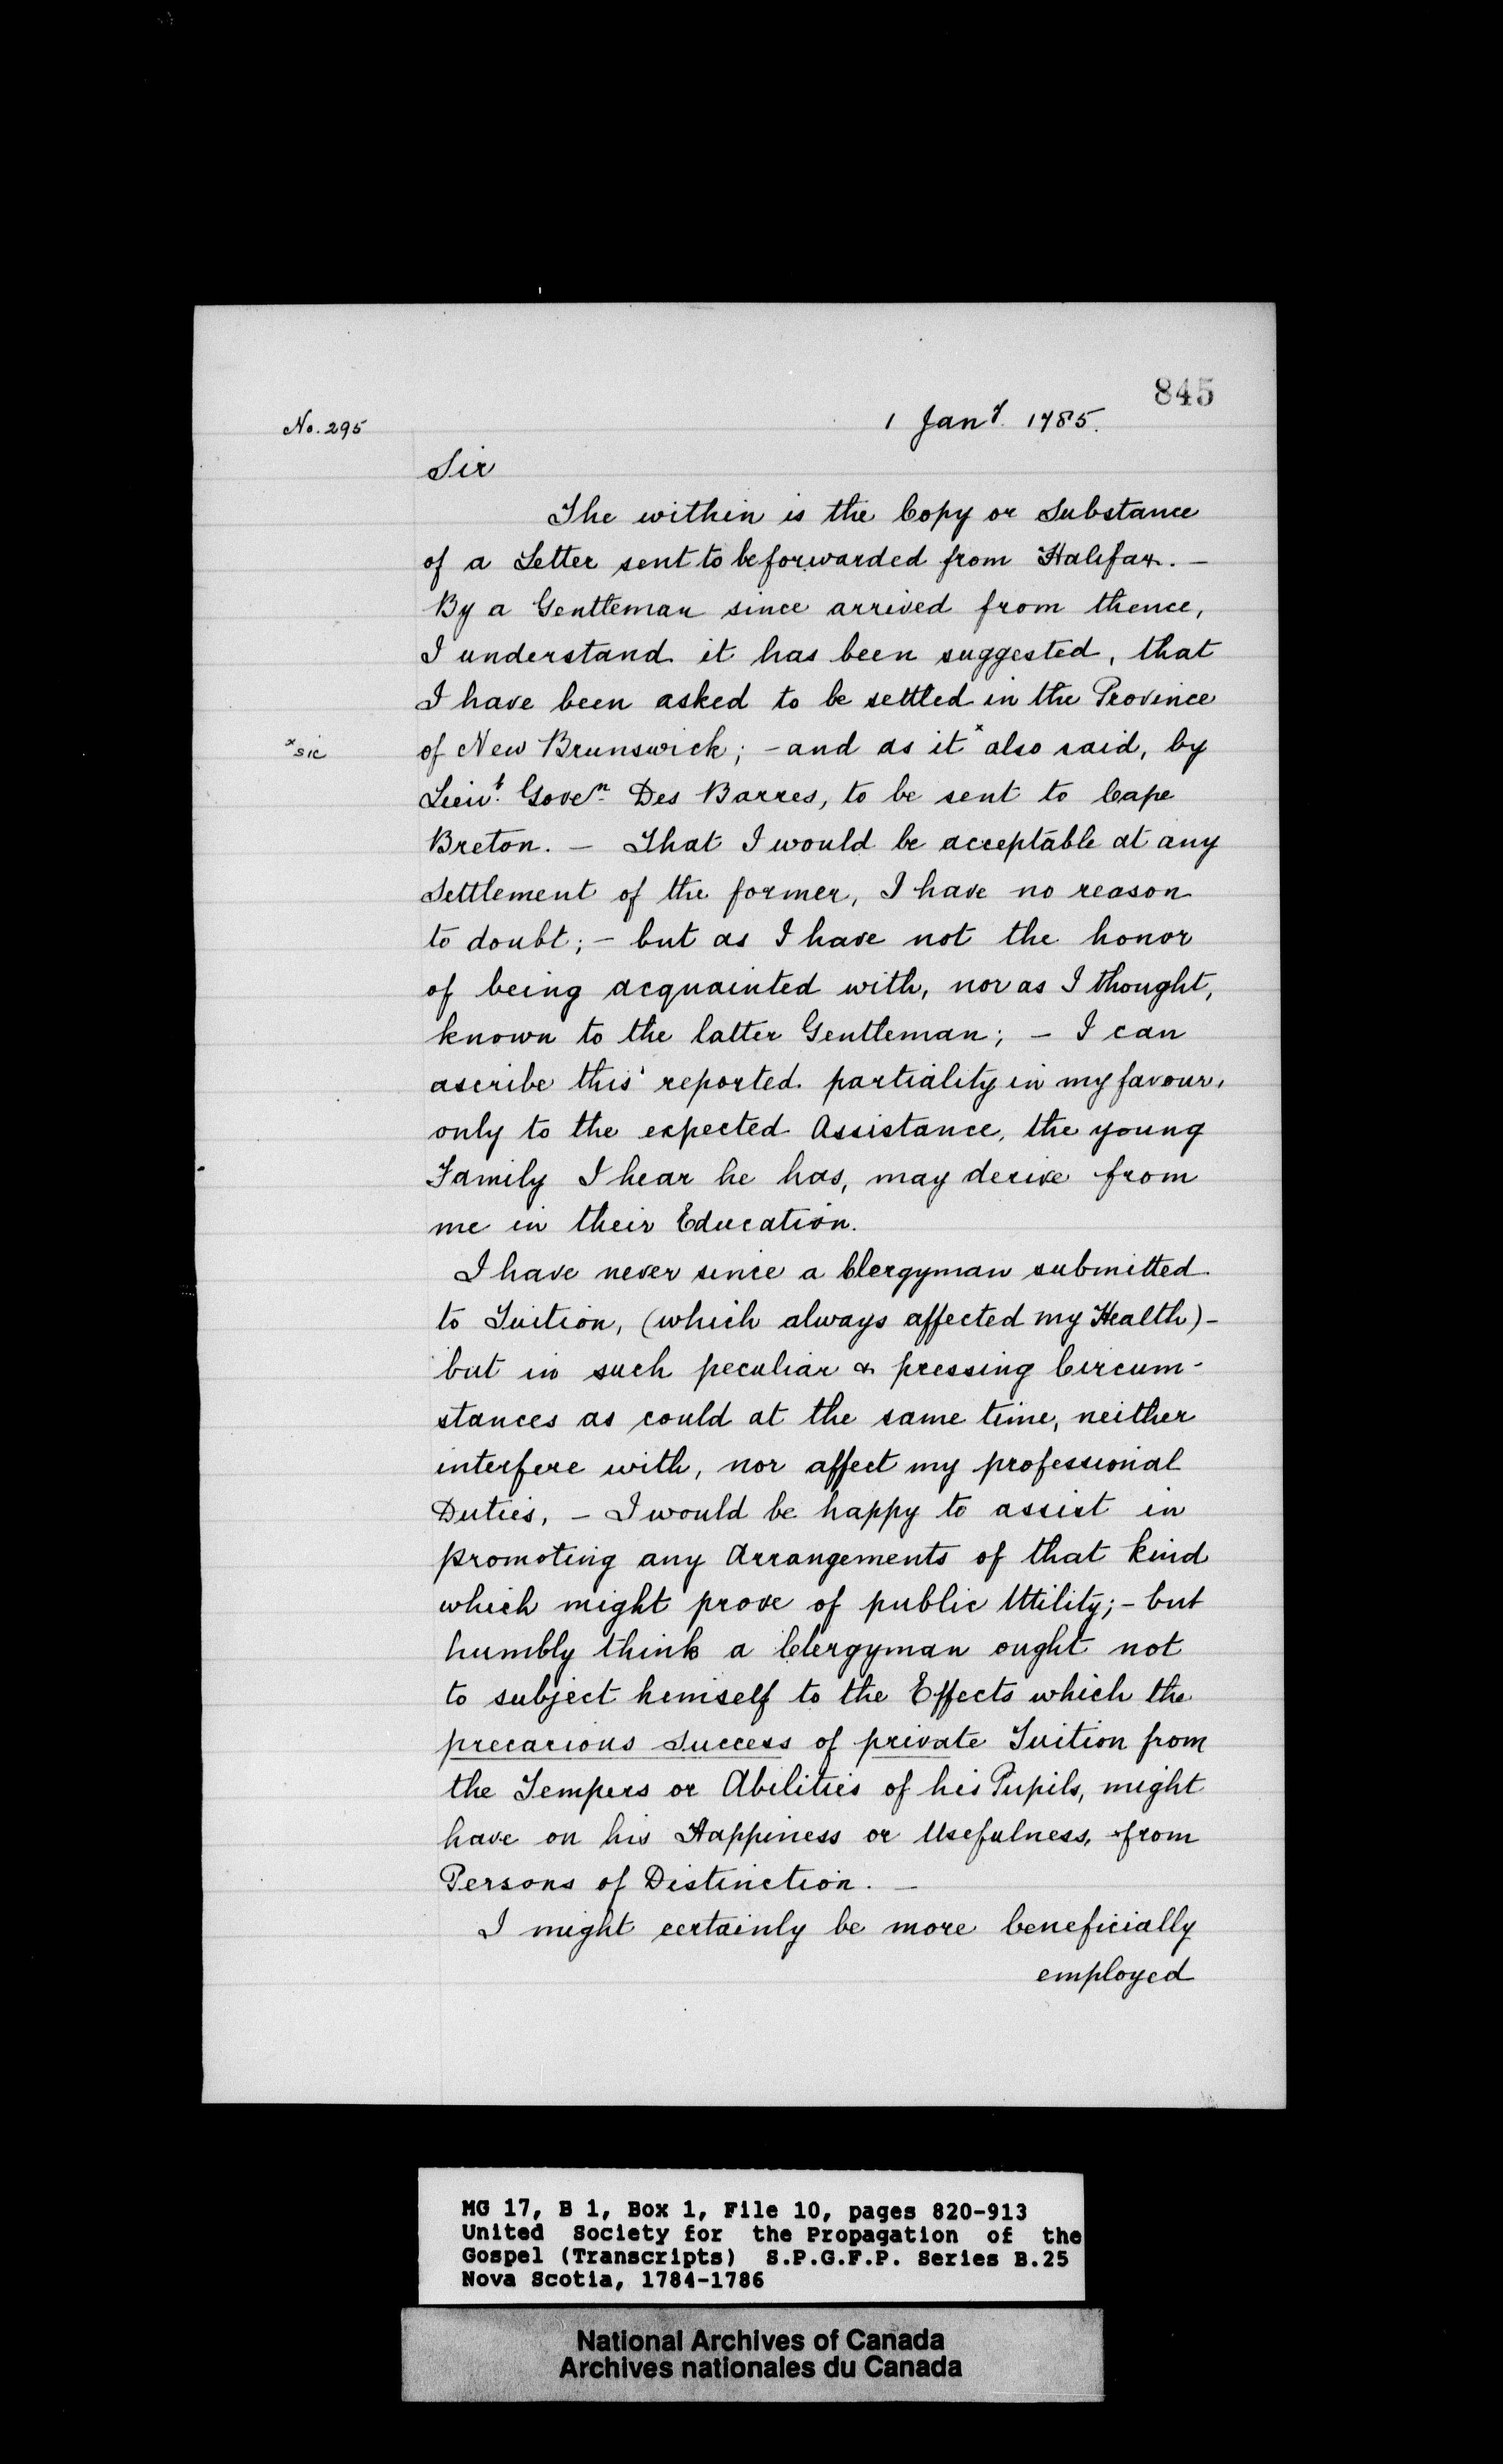 845
No. 295
1 Jany. 1785.
Sir
The within is the Copy or Substance
of a Letter sent to be forwarded from Halifax. —
By a Gentleman since arrived from thence,
I understand it has been suggested, that
I have been asked to be settled in the Province
xsic
of New Brunswick; – and as it x also said, by
Lieut. Govern. Des Barres, to be sent to Cape
Breton. — That I would be acceptable at any
Settlement of the former, I have no reason
to doubt; – but as I have not the honor
of being acquainted with, nor as I thought,
known to the latter Gentleman; – I can
ascribe this reported partiality in my favour,
only to the expected Assistance, the young
Family I hear he has, may derive from
me in their Education.
I have never since a Clergyman submitted
to Tuition, (which always affected my Health) –
but in such peculiar & pressing Circum-
stances as could at the same time, neither
interfere with, nor affect my professional
Duties, – I would be happy to assist in
promoting any Arrangements of that kind
which might prove of public Utility; – but
humbly think a Clergyman ought not
to subject himself to the Effects which the
precarious Success of private Tuition from
the Tempers or Abilities of his Pupils, might
have on his Happiness or Usefulness, from
Persons of Distinction. —
I might certainly be more beneficially
employed
MG 17, B 1, Box 1, File 10, pages 820-913
United Society for the Propagation of the
Gospel (Transcripts) S.P.G.F.P. Series B.25
Nova Scotia, 1784-1786
National Archives of Canada
Archives nationales du Canada